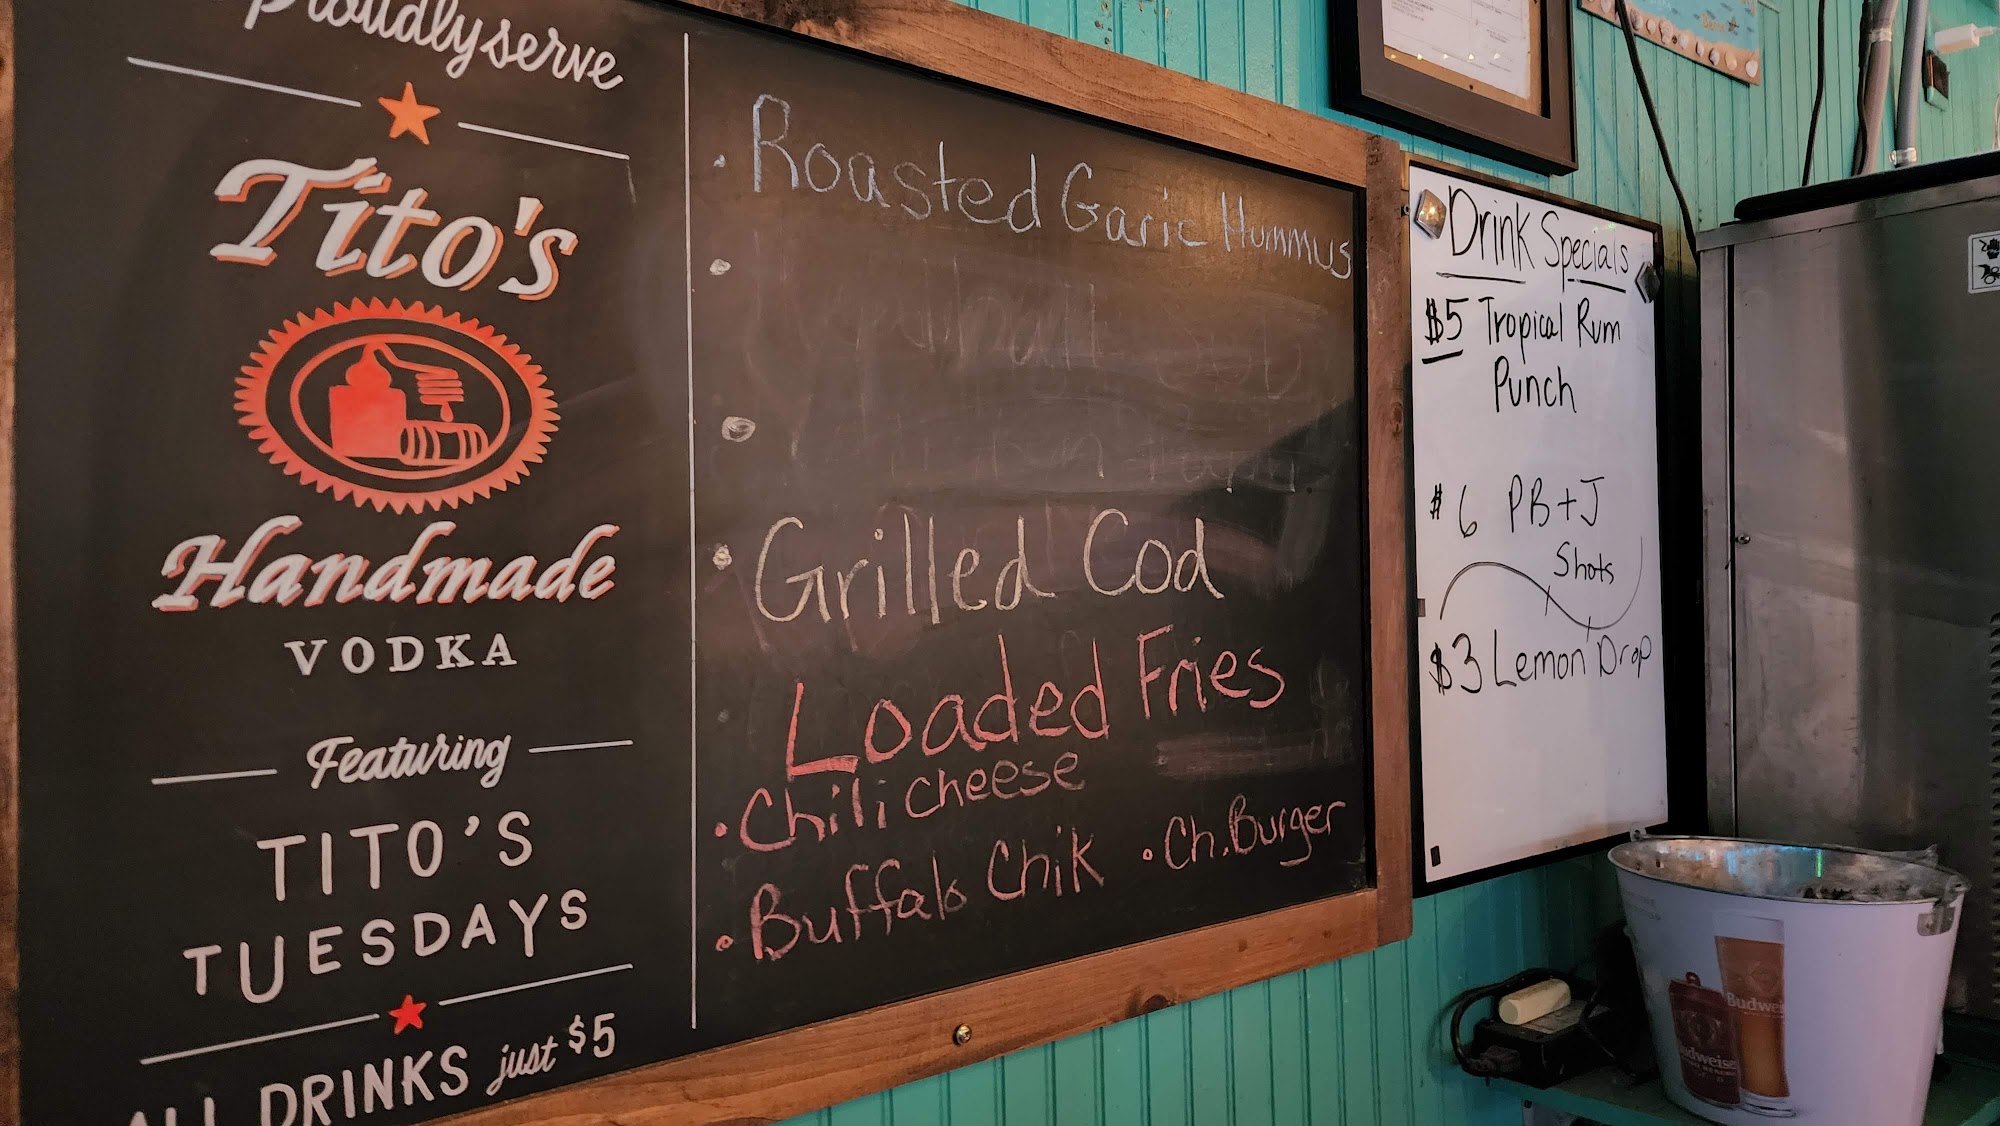 Proudly serve
Tito's
Handmade
VODKA
Featuring
TITO'S
TUESDAYS
ALL DRINKS just $5
• Roasted Garic Hummus
•
•
• Grilled Cod
Loaded Fries
• Chili Cheese
• Buffalo Chik • Ch. Burger
Drink Specials
$5 Tropical Rum
Punch
$6 PB+J
Shots
$3 Lemon Drop
Budweis
Budweise